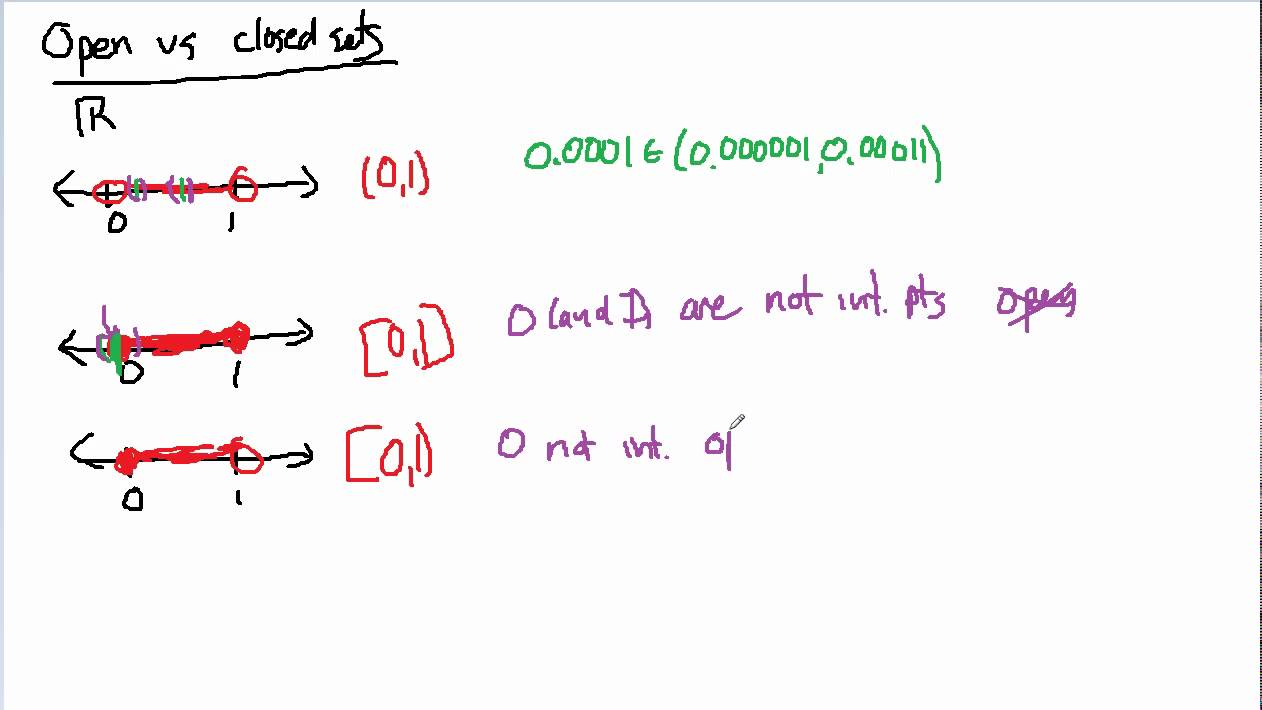 Open vs closed sets
ℝ
(0,1) 0.0001 ∈ (0.000001, 0.00011)
0 1
[0,1] 0 (and 1) are not int. pts open
0 1
[0,1) 0 not int. op
0 1